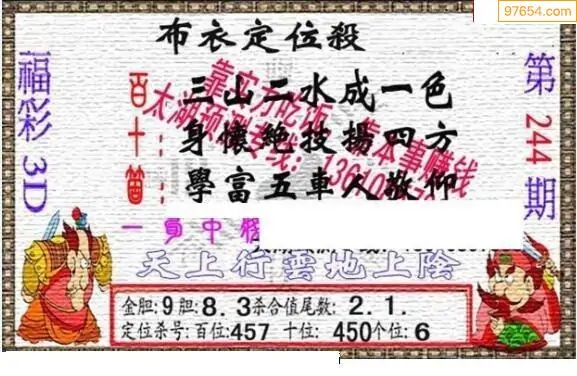 97654.com
布衣定位殺
福彩3D
第244期
百:三山二水成一色
十:身懷絶技揚四方
學富五車人敬仰
靠实力吃饭 靠本事赚钱
太湖预测专线:
一員中
天上行雲地上陰
金胆:9胆:8.3杀合值尾数:2.1.
定位杀号:百位:457 十位:450个位:6